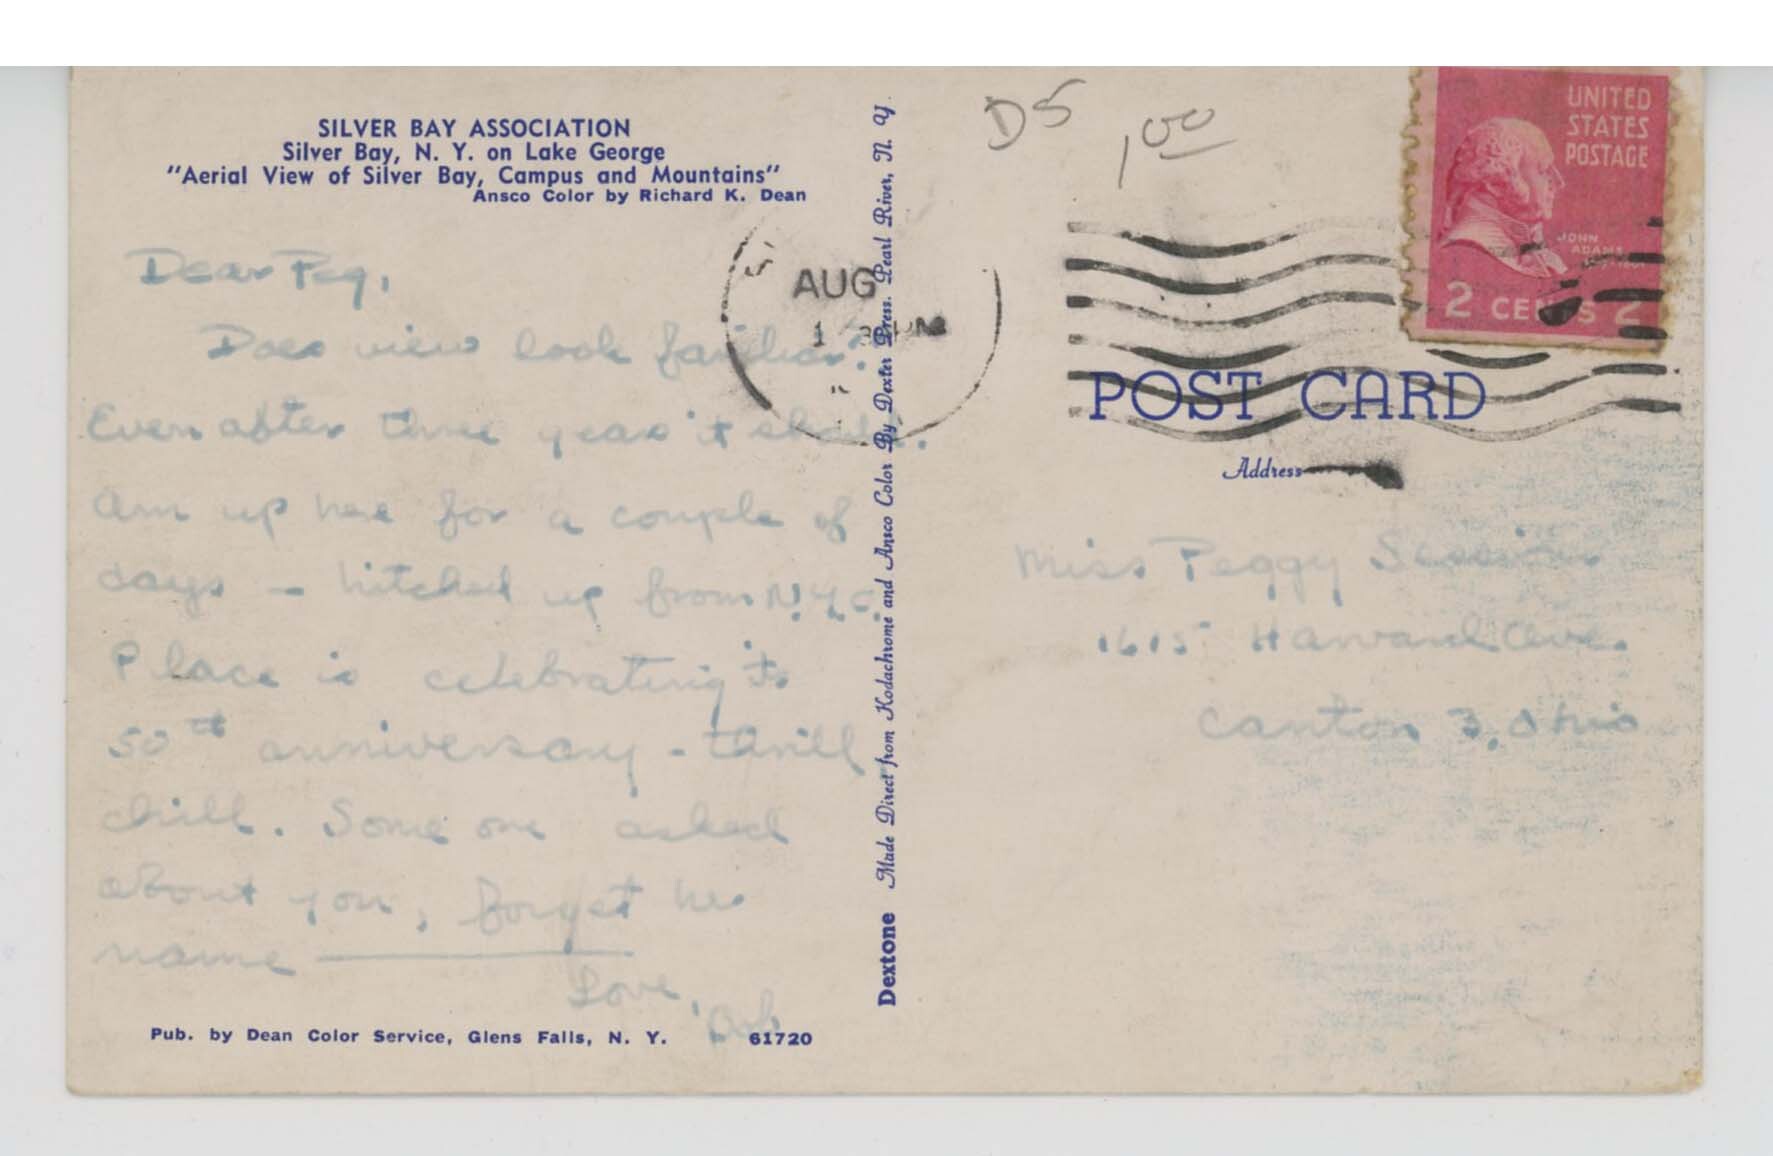 SILVER BAY ASSOCIATION
Silver Bay, N. Y. on Lake George
"Aerial View of Silver Bay, Campus and Mountains"
Ansco Color by Richard K. Dean
Dear Peg,
Does view look familiar?
Even after three years it should.
Am up here for a couple of
days - hitched up from N.Y.C.
Place is celebrating its
50th anniversary - thrill
chill. Some one asked
about you, forget her
name
Love,
Pub. by Dean Color Service, Glens Falls, N. Y. 61720
Dextone Made Direct from Kodachrome and Ansco Color By Dexter Press. Pearl River, N. Y.
D5 1.00
AUG
1
PM
UNITED
STATES
POSTAGE
JOHN
ADAMS
2 CENTS 2
POST CARD
Address
Miss Peggy
1615 Harvard Ave.
Canton 3, Ohio